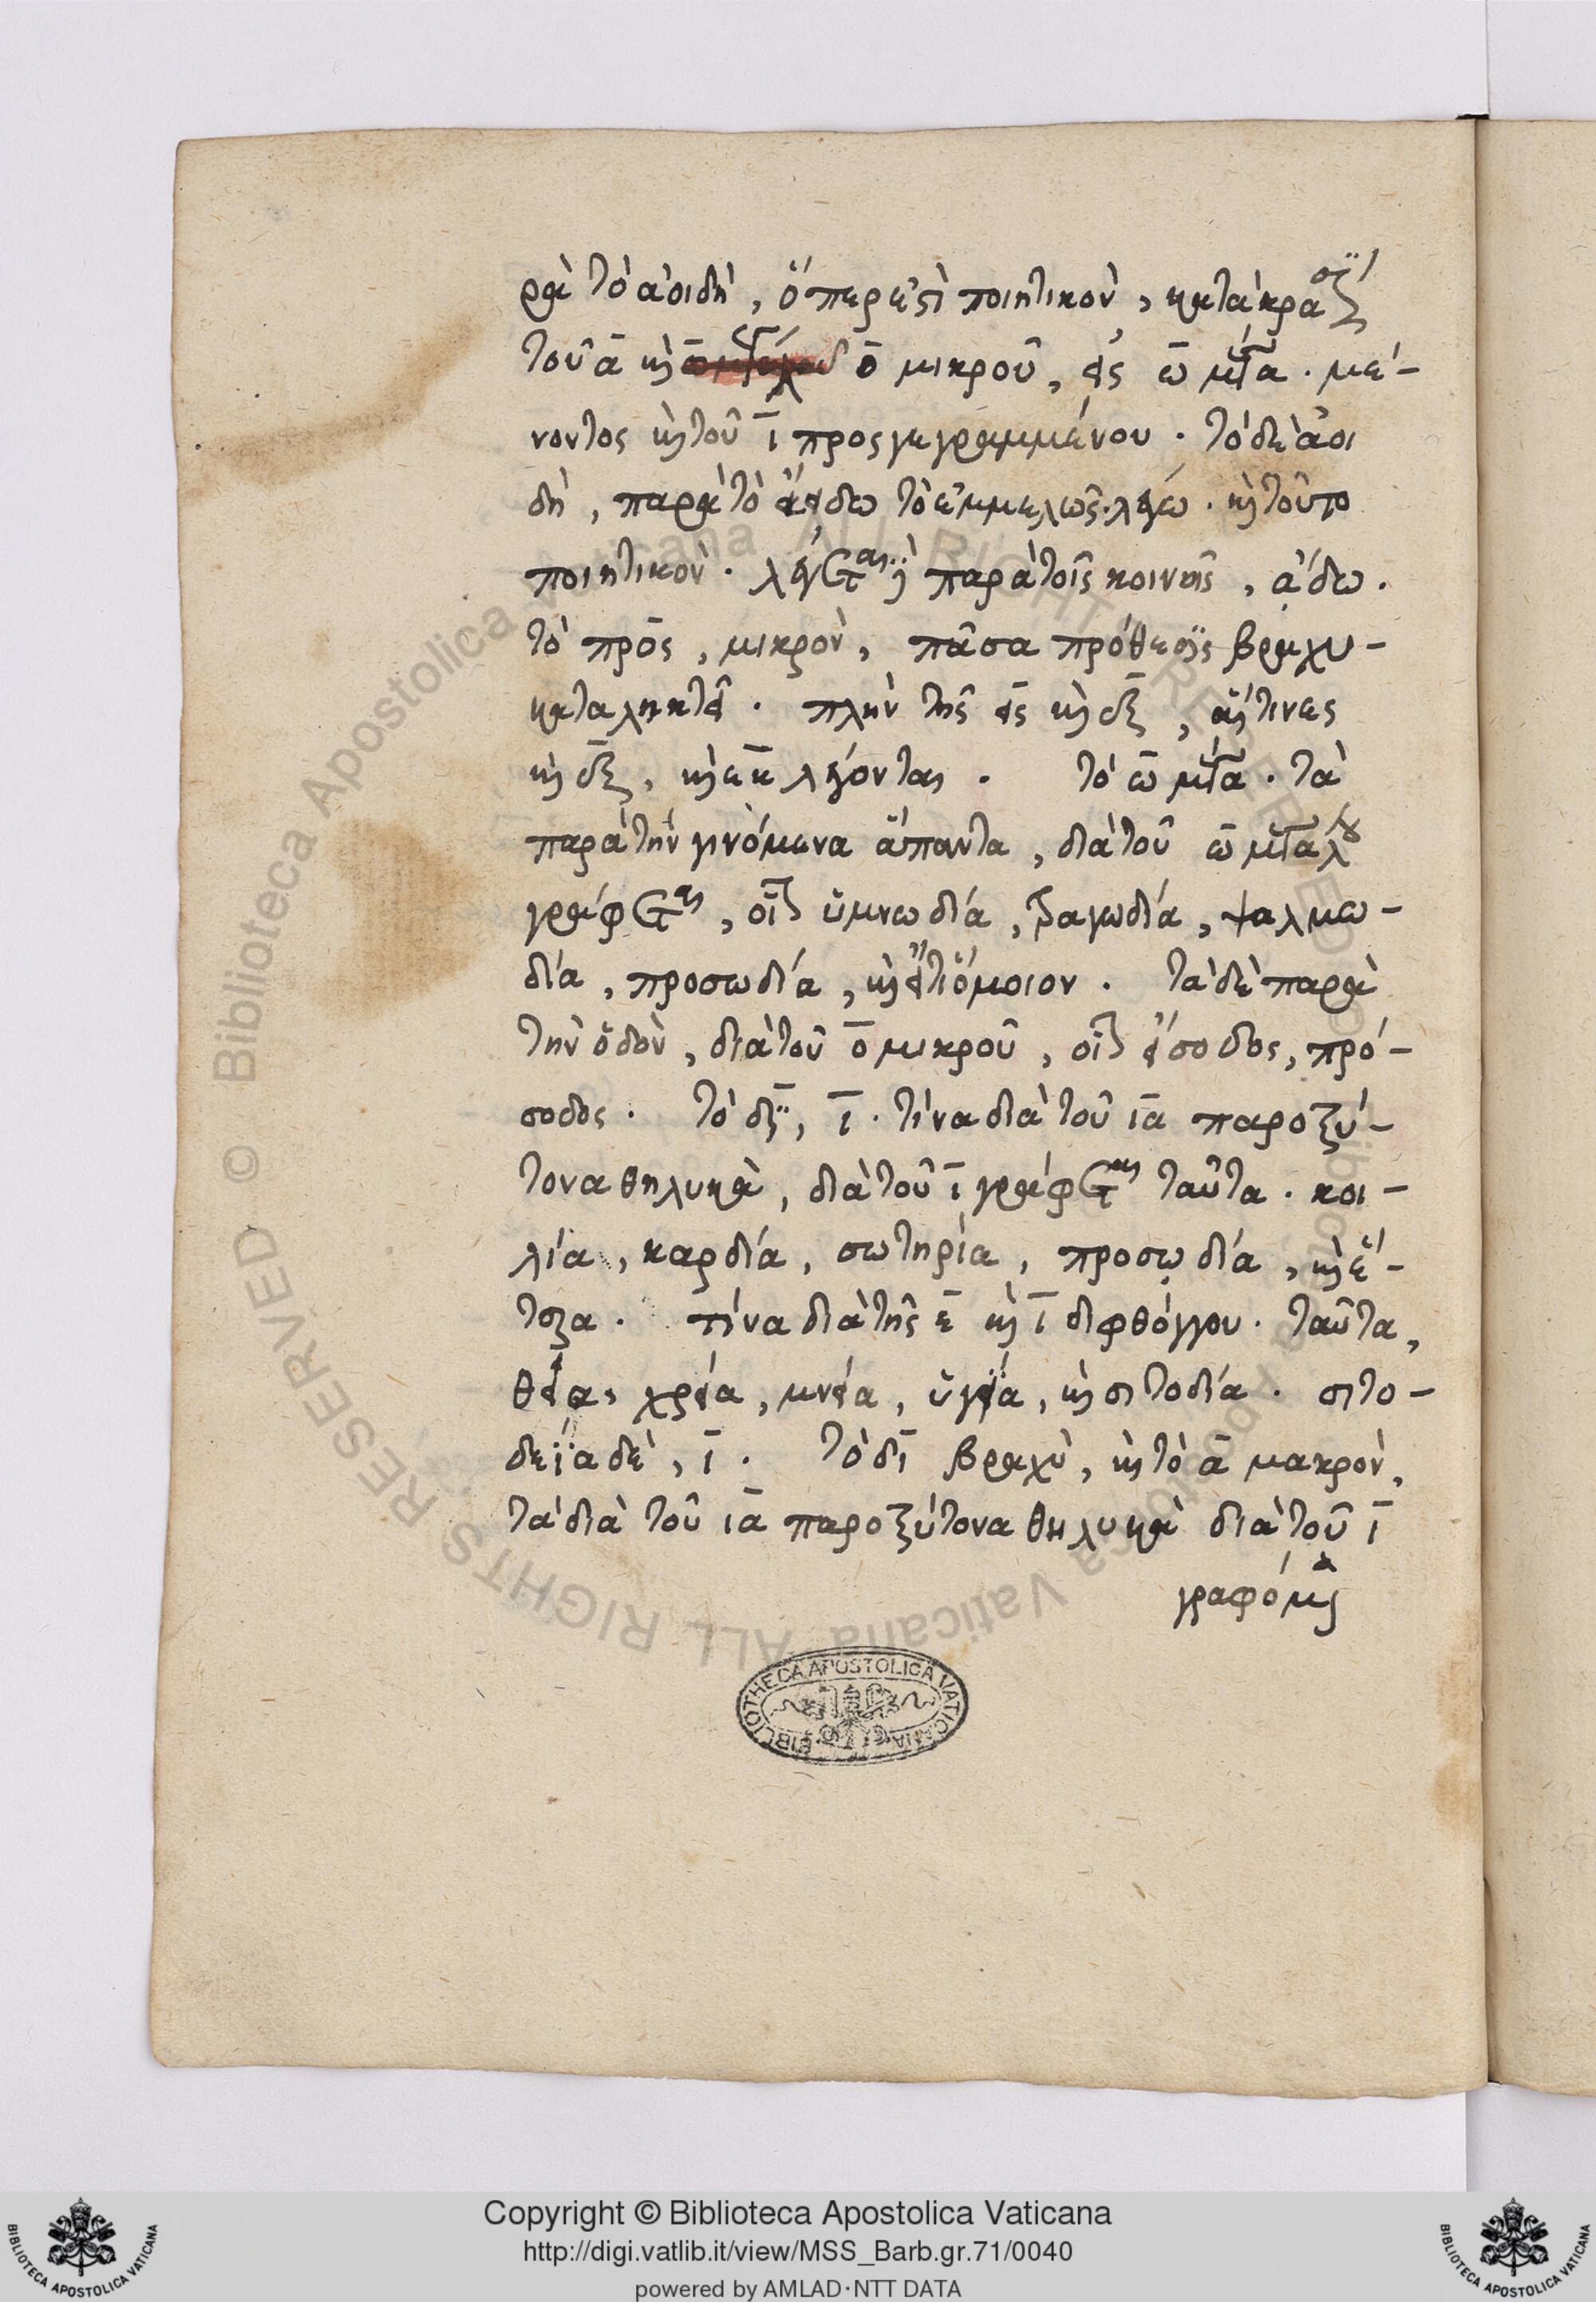 ρὰ τὸ ἀοιδὴ, ὅπερ ἐστὶ ποιητικὸν, κατὰ κρᾶσιν
τοῦ ᾱ καὶ ο̄ μικροῦ, εἰς ω̄ μέγα. μέ-
νοντος καὶ τοῦ ῑ προςγεγραμμένου. τὸ δὲ ἀοι
δὴ, παρὰ τὸ ἀείδω τὸ ἐμμελῶς λέγω. καὶ τοῦτο
ποιητικὸν. λέγεται παρὰ τοῖς κοινοῖς, ᾄδω.
τὸ πρὸς, μικρὸν, πᾶσα πρόθεσις βραχυ-
καταληκτεῖ. πλὴν τῆς εἰς καὶ ἐξ, αἵτινες
καὶ ἐξ, καὶ ἐκ λέγονται. τὸ ω̄ μέγα. τὰ
παρὰ τὴν γινόμενα ἅπαντα, διὰ τοῦ ω̄ μεγάλου
γράφεται, οἷον ὑμνωδία, τραγωδία, ψαλμω-
δία, προσωδία, καὶ εἴτι ὅμοιον. τὰ δὲ παρὰ
τὴν ὁδὸν, διὰ τοῦ ο̄ μικροῦ, οἷον εἴσοδος, πρό-
σοδος. τὸ δῑ, ῑ. τίνα διὰ τοῦ ῑᾱ παροξύ-
τονα θηλυκὰ, διὰ τοῦ ῑ γράφεται ταῦτα. κοι-
λία, καρδία, σωτηρία, προσῳδία, καὶ ἕ-
τερα. τίνα διὰ τῆς ε̄ καὶ ῑ διφθόγγου. ταῦτα,
θεία, χρεία, μνεία, ὑγεία, καὶ σιτοδία. σιτο-
δεΐα δὲ, ῑ. τὸ δῑ βραχὺ, καὶ τὸ ᾱ μακρὸν,
τὰ διὰ τοῦ ῑᾱ παροξύτονα θηλυκὰ διὰ τοῦ ῑ
γραφόμενα
BIBLIOTHECA APOSTOLICA VATICANA
© Biblioteca Apostolica Vaticana ALL RIGHTS RESERVED
Copyright © Biblioteca Apostolica Vaticana
http://digi.vatlib.it/view/MSS_Barb.gr.71/0040
powered by AMLAD·NTT DATA
BIBLIOTECA APOSTOLICA VATICANA
BIBLIOTECA APOSTOLICA VATICANA